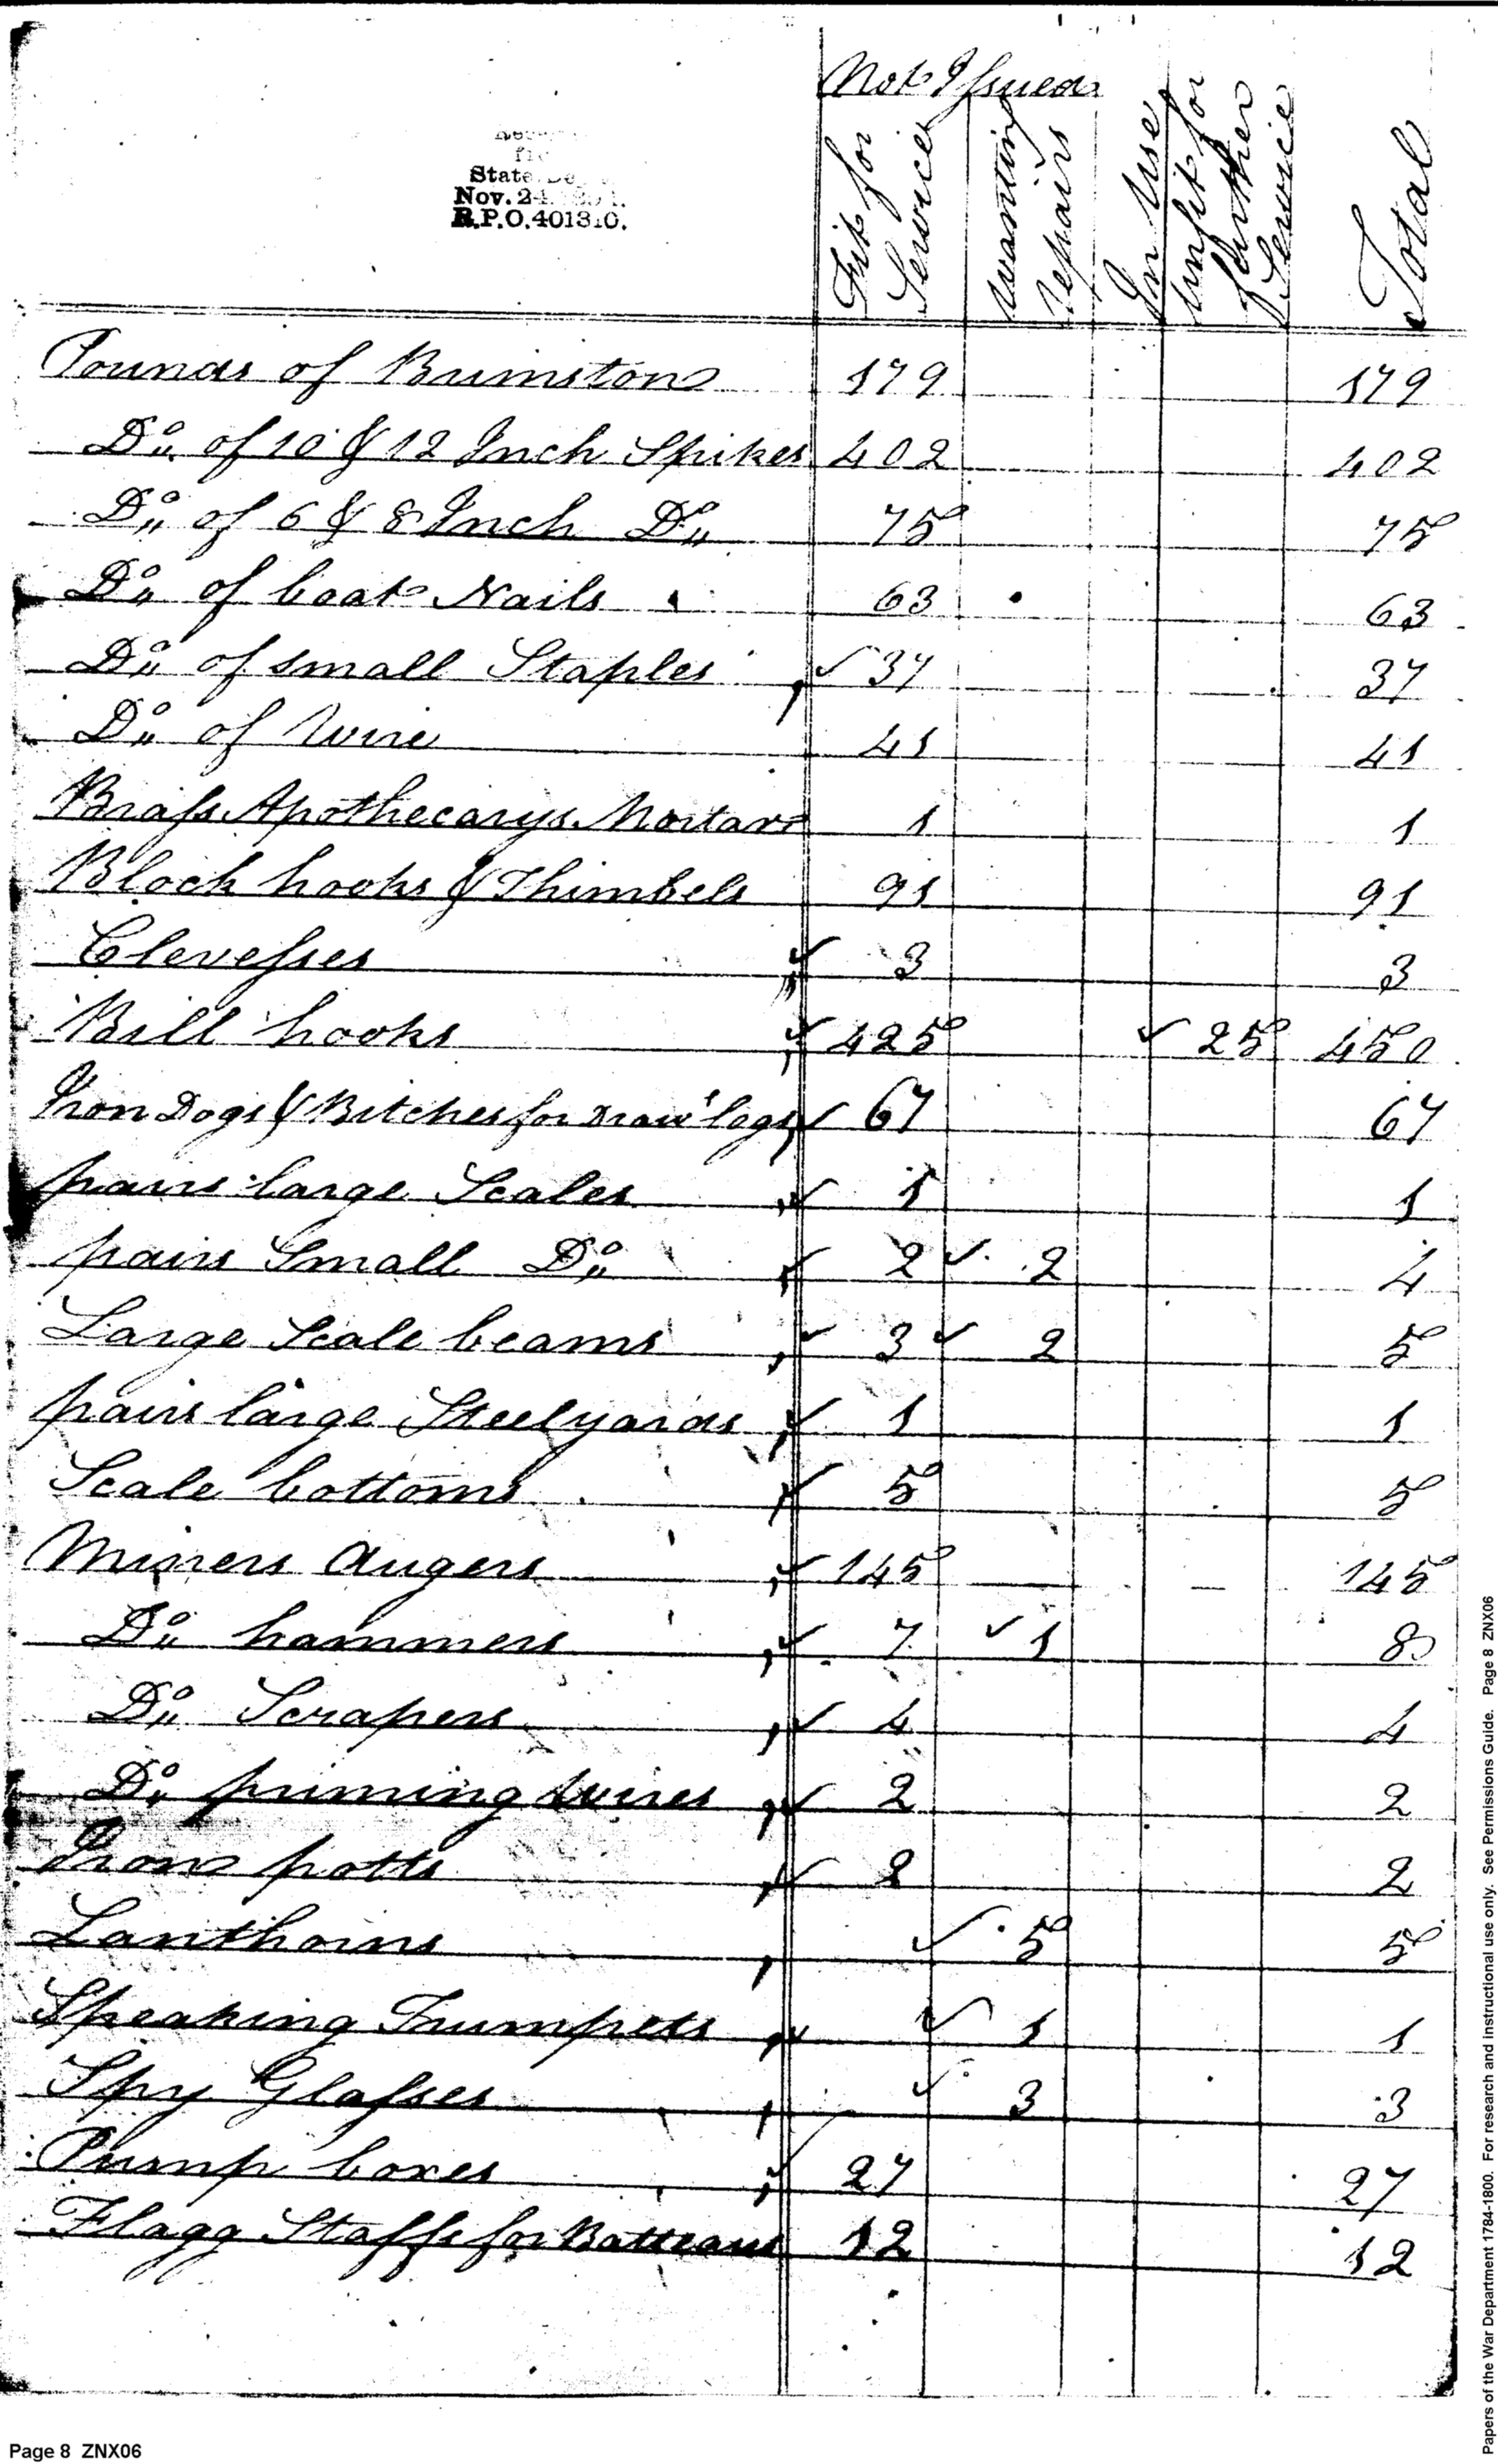 Not Issued
Fit for Service
Wanting repairs
In Use
Unfit for further Service
Total
State
Nov. 24
R.P.O. 401310.
Pounds of Brimstone 179 179
Do,, of 10 & 12 Inch Spikes 402 402
Do,, of 6 & 8 Inch Do,, 75 75
Do,, of boat Nails 63 63
Do,, of small Staples ✓ 37 37
Do,, of Wire 41 41
Brass Apothecarys Mortar 1 1
Block hooks & Thimbels 91 91
Clevesses ✓ 3 3
Bill hooks ✓ 425 ✓ 25 450
Iron Dogs & Bitches for Draw'logs ✓ 67 67
pairs large Scales ✓ 1 1
pairs Small Do,, ✓ 2 ✓ 2 4
Large Scale beams ✓ 3 ✓ 2 5
pairs large Steelyards ✓ 1 1
Scale bottoms ✓ 5 5
Miners Augers ✓ 145 145
Do,, hammers ✓ 7 ✓ 1 8
Do,, Scrapers ✓ 4 4
Do,, priming wires ✓ 2 2
Iron potts ✓ 2 2
Lanthorns ✓ 5 5
Speaking Trumpets ✓ 1 1
Spy Glasses ✓ 3 3
Pump boxes ✓ 27 27
Flagg Staffs for Batteaus 12 12
Page 8 ZNX06
Papers of the War Department 1784-1800. For research and instructional use only. See Permissions Guide. Page 8 ZNX06